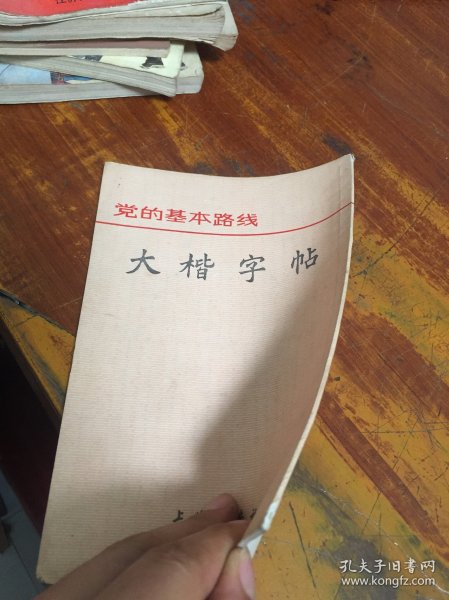 党的基本路线
大楷字帖
孔夫子旧书网
www.kongfz.com